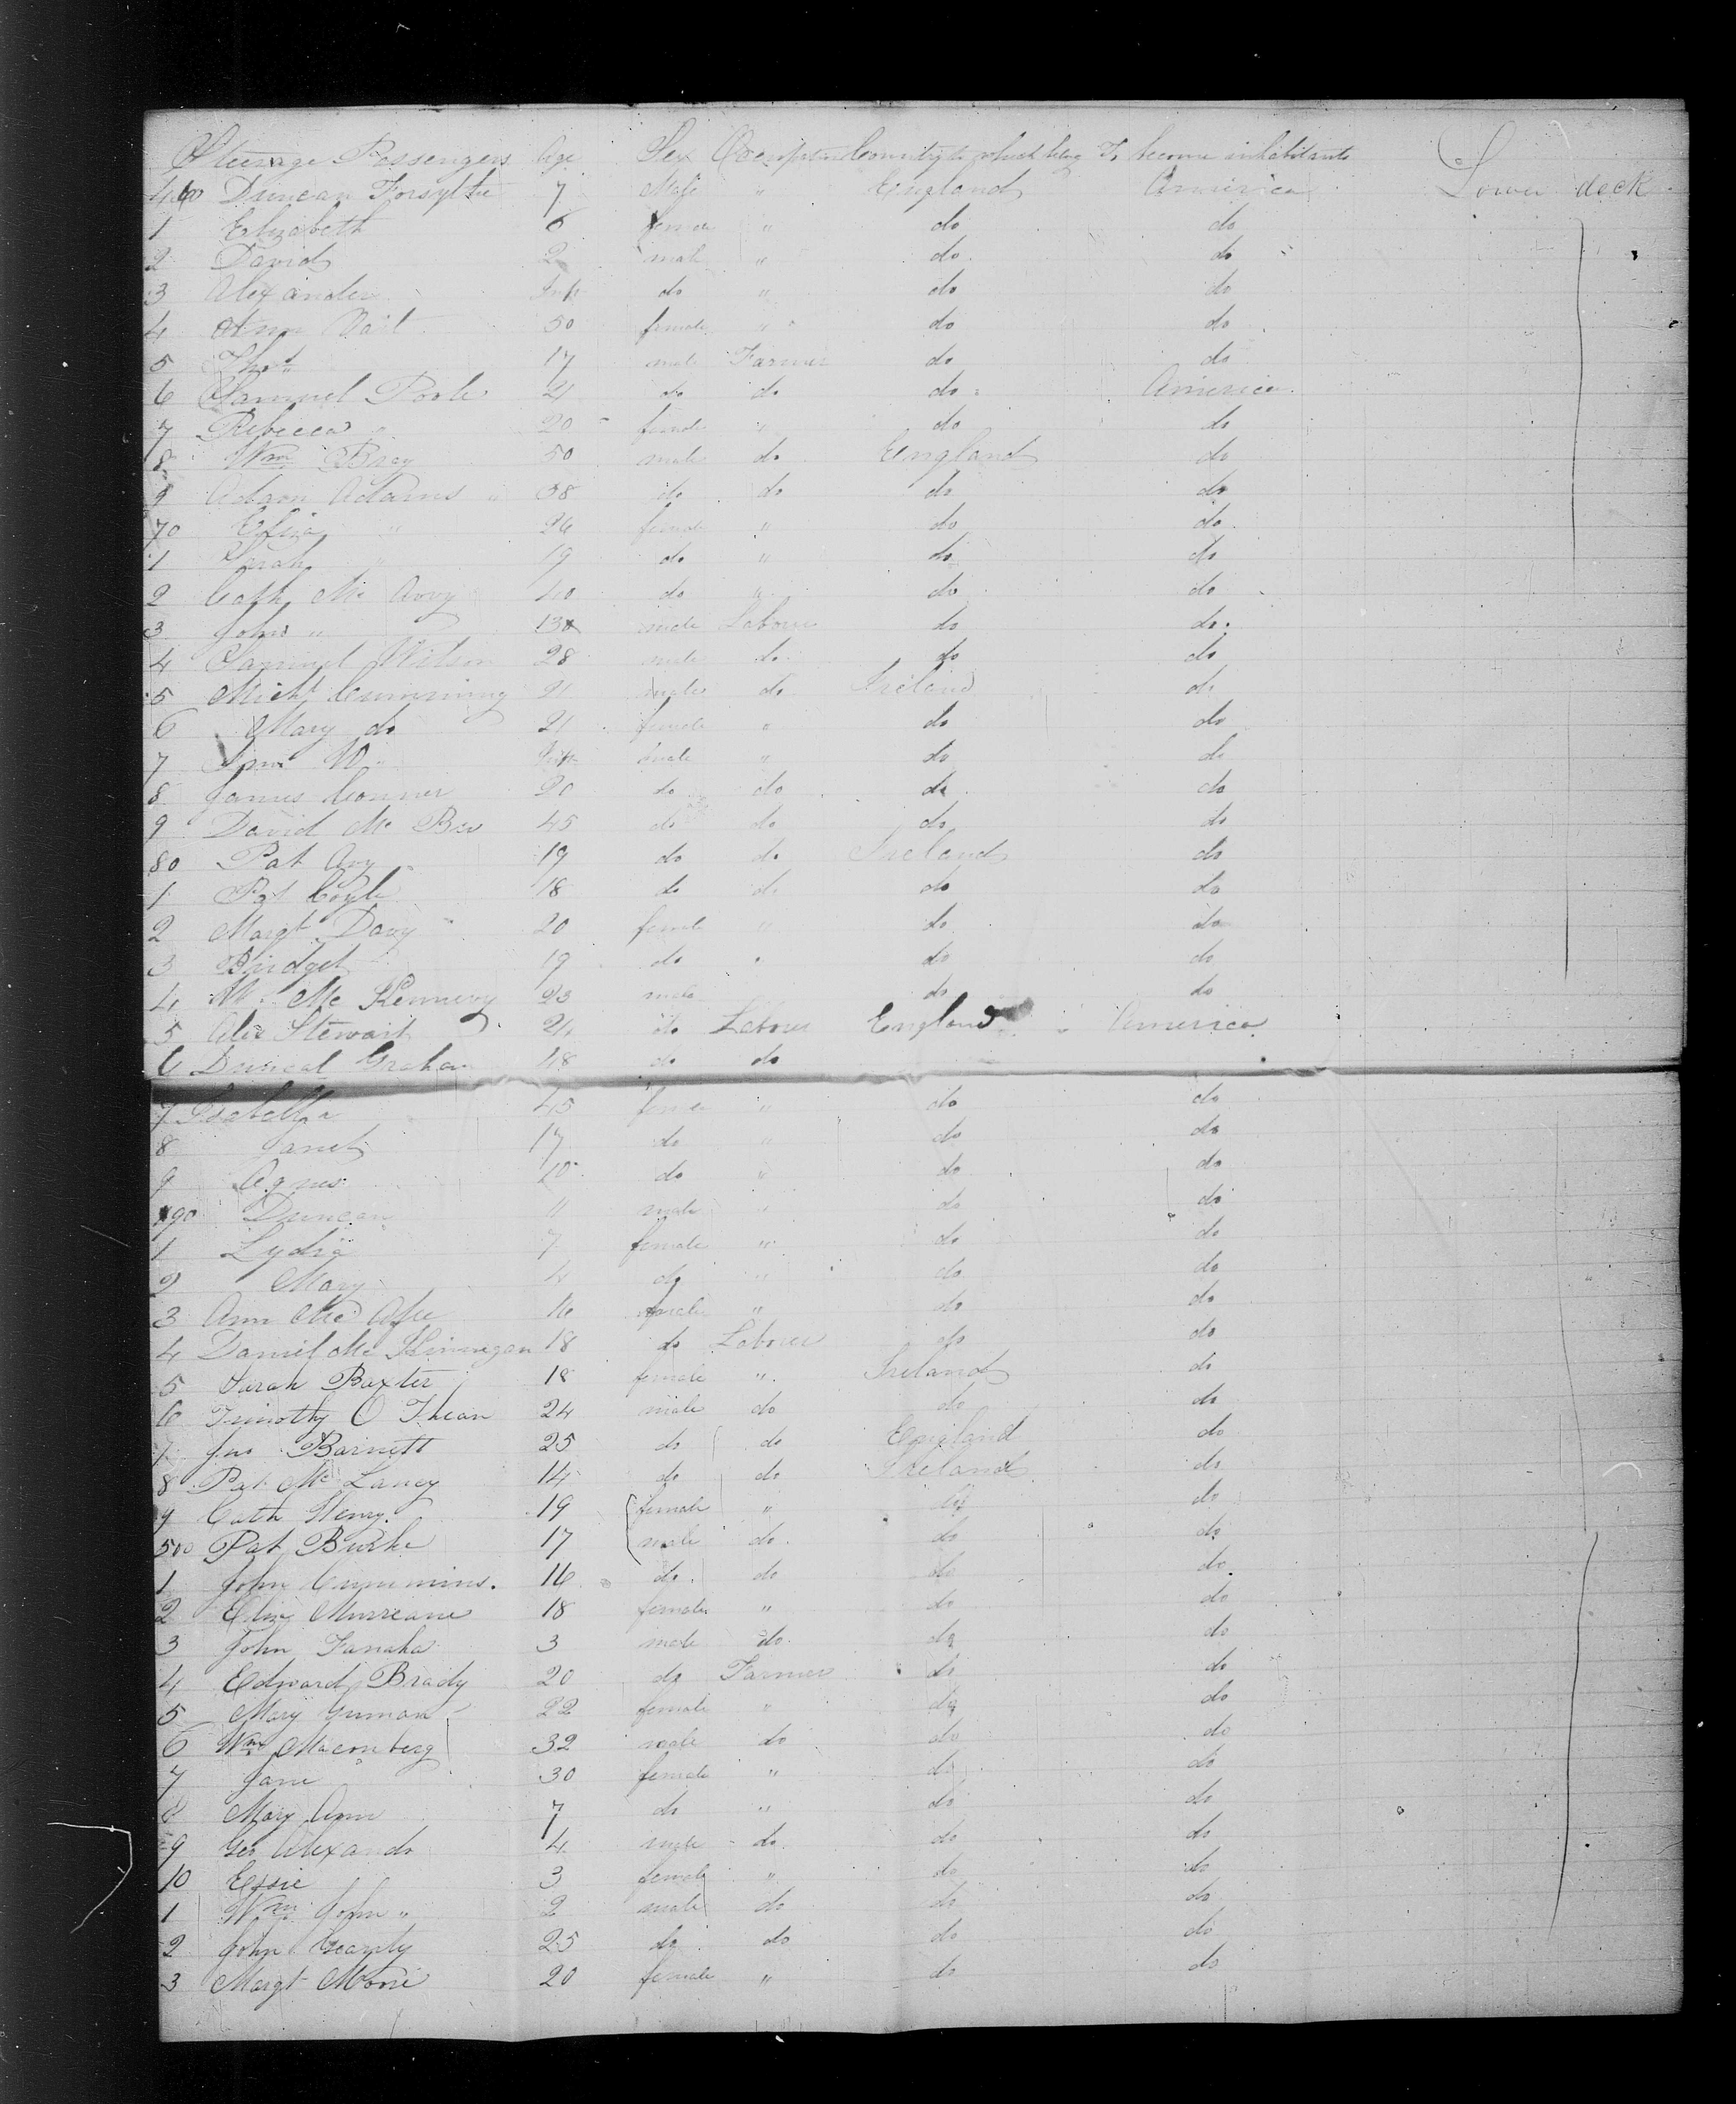 Steerage Passengers Age Sex Occupation Country to which belong To become inhabitants Lower deck
460 Duncan Forsythe 7 Male " England America
1 Elizabeth 6 female " do do
2 David 2 male " do do
3 Alexander Inft do " do do
4 Ann 50 female " do do
5 Thos " 17 male Farmer do do
6 Samuel Poole 21 do do do America
7 Rebecca " 20 female " do do
8 Wm Bray 50 male do England do
9 Adams 38 do do do do
70 Eliza " 26 female " do do
1 Sarah " 19 do " do do
2 Cath Mc Avoy 40 do " do do
3 John " 13 male Labourer do do
4 Samuel Wilson 28 male do do do
5 Michl Cumming 21 male do Ireland do
6 Mary do 21 female " do do
7 W male " do do
8 James Conner 20 do do do do
9 David Mc 45 do do do do
80 Pat 19 do do Ireland do
1 Pat Coyle 18 do do do do
2 Margt Davy 20 female " do do
3 Bridget 19 do " do do
4 Mc 23 male do do
5 Alex Stewart 21 do Labourer England America
6 Graham 48 do do
7 Isabella 45 female " do do
8 Janet 17 do " do do
9 Agnes do " do do
490 Duncan 11 male " do do
1 Lydia 7 female " do do
2 Mary 4 do " do do
3 Ann Mc Afee 16 " do do
4 Daniel Mc Kinnegan 18 do Labourer do do
5 Sarah Baxter 18 female " Ireland do
6 Timothy O 24 male do do do
7 Jno Barnett 25 do do England do
8 Pat Mc Laney 14 do do Ireland do
9 Cath Henry 19 female " do do
500 Pat Burke 17 male do do do
1 John Cummins 16 do do do do
2 Eliz 18 female " do do
3 John Fanaha 3 male do do do
4 Edward Brady 20 do Farmer do do
5 Mary 22 female " do do
6 Wm 32 male do do do
7 Jane 30 female " do do
8 Mary Ann 7 do " do do
9 Alexandr 4 male do do do
10 Essie 3 female " do do
1 Wm John " 2 male do do do
2 John 25 do do do do
3 Margt 20 female " do do